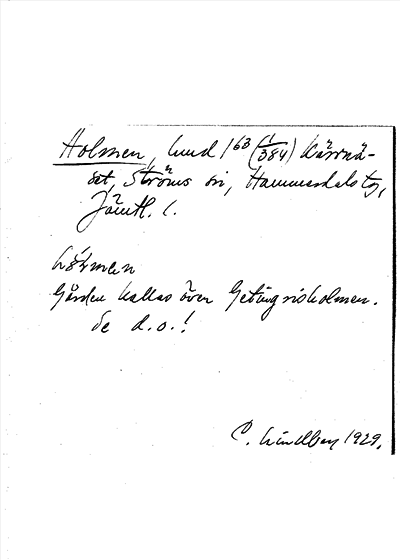 Holmen, hmd 1⁶³ (1/384) Kärrnä-
set, Ströms sn, Hammerdals tg,
Jämtl. l.
Gården kallas över Getingrisholmen.
Se d.o.!
C. Lindberg 1929.